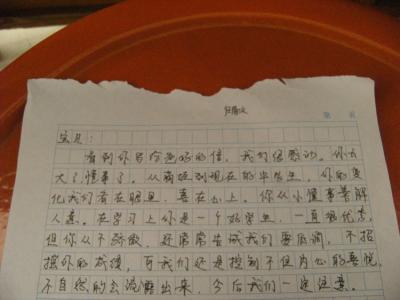 宝贝：
看到你写给爸妈的信，我们很感动。你长
大了懂事了。从病班到现在的毕业生，你的变
化我们看在眼里，喜在心上。你从小懂事善解
人意。在学习上你是一个优等生，一直很优秀，
但你从不骄傲，还常常告诫我们要低调，不招
摇你的成绩，可我们还是控制不住内心的喜悦
不自然的会流露出来，今后我们一定注意。
第 页